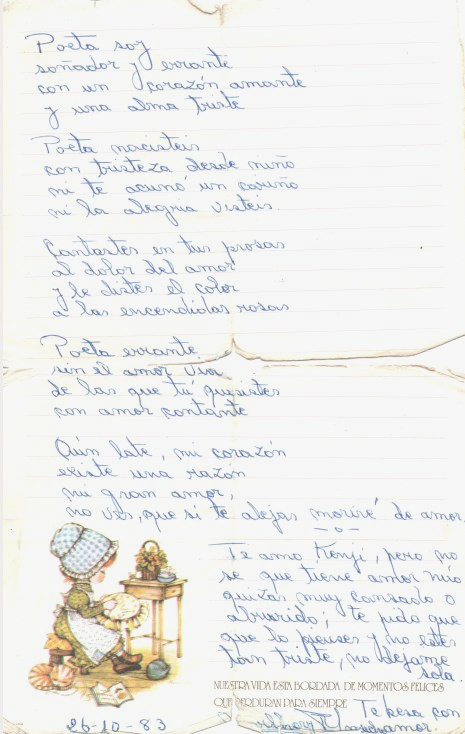 Poeta soy
soñador y errante
con un corazón amante
y una alma triste
Poeta nacisteis
con tristeza desde niño
ni te acunó un cariño
ni la alegria visteis.
Cantastes en tus prosas
al dolor del amor
y le distes el color
a las encendidas rosas
Poeta errante
sin el amor
de las que tú quisistes
con amor
Aún late, mi corazón
existe una razón
mi gran amor,
no ves, que si te alejas moriré de amor
-o-
Te amo Kenji, pero no
se que tiene amor mío
quizas muy cansado o
aburrido; te pido que
que lo pienses y no estes
tan triste, no dejame
sola.
NUESTRA VIDA ESTA BORDADA DE MOMENTOS FELICES
QUE PERDURAN PARA SIEMPRE
Te besa con
amor.
26-10-83